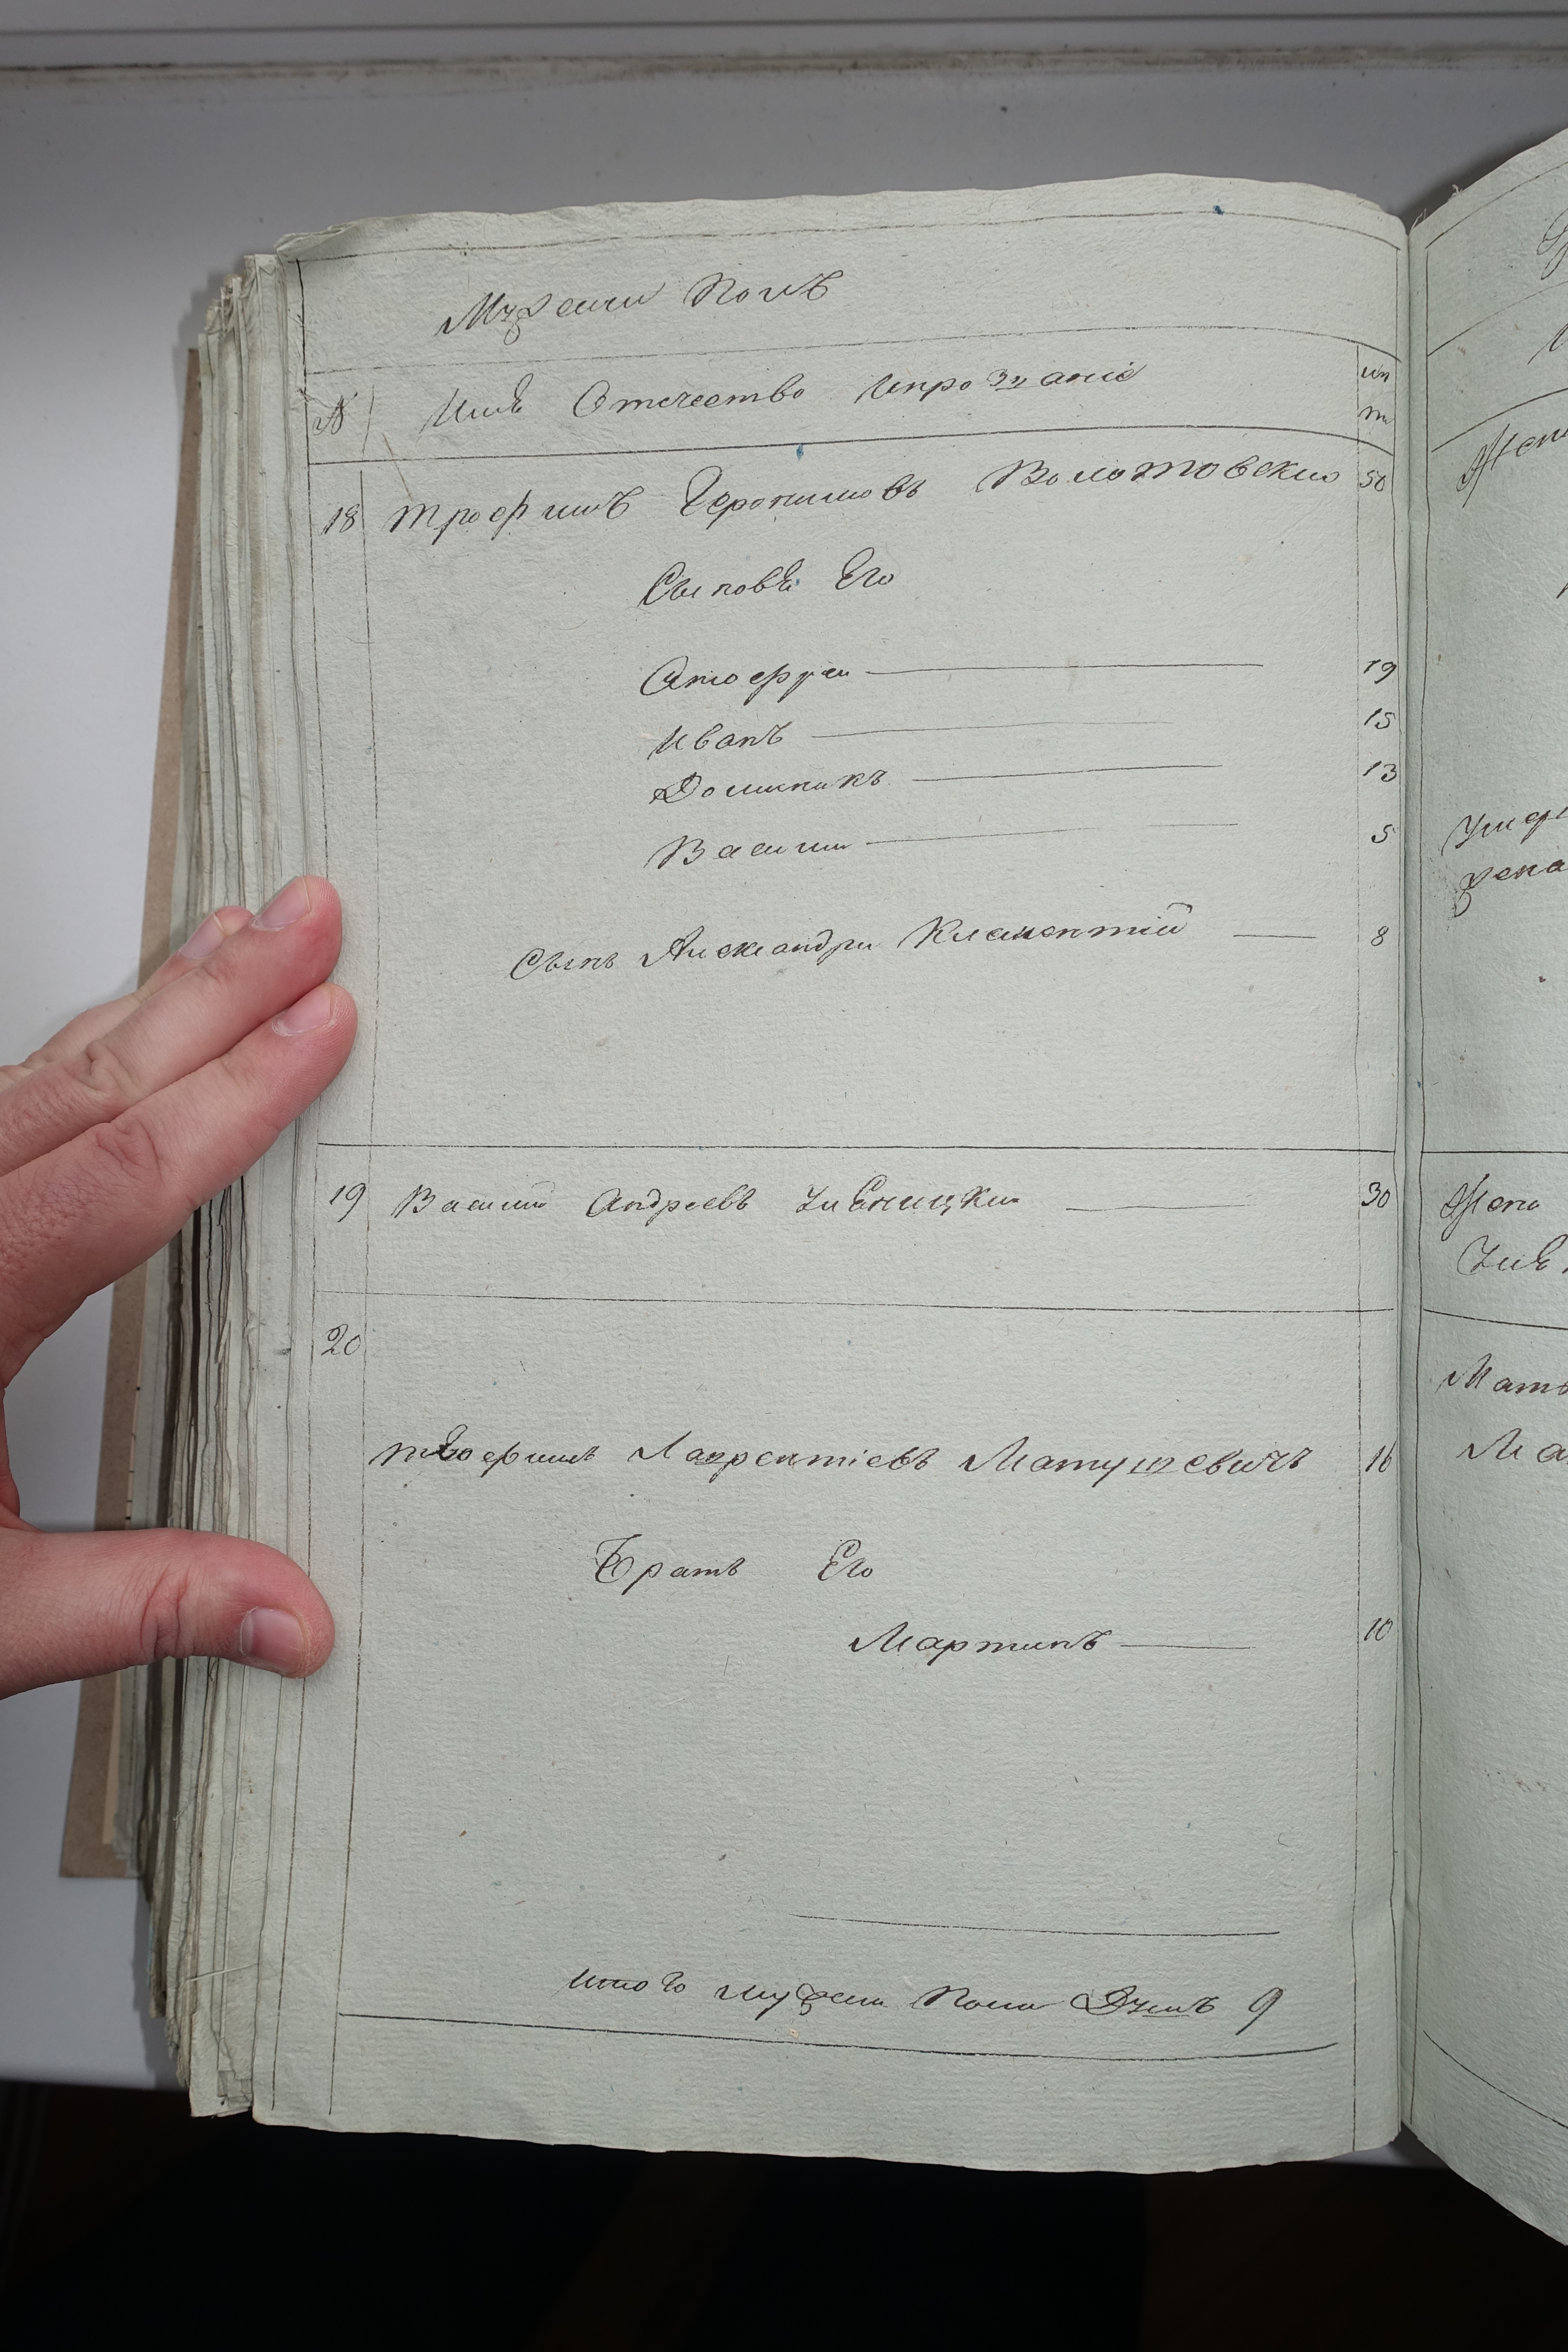 Мужески Полъ
№ Имѣ Отечество Ипрозвание лѣ
та
18 Трофимъ Геронимовъ Волотовски 50
Сыновѣ Его
Онофрей 19
Иванъ 15
Доминикъ 13
Васили 5
Сынъ Александри Клементій 8
19 Василий Андреевъ 30
20
Лаврентіевъ Матушевичъ 16
Братъ Его
Мартинъ 10
Итого мужеска Пола Душъ 9
Жена
Мать